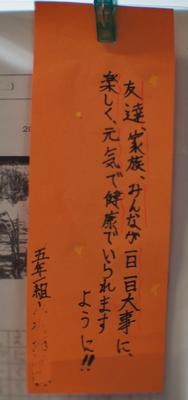 友達、家族、みんなが一日一日大事に、
楽しく、元気で健康でいられます
ように!!
五年組